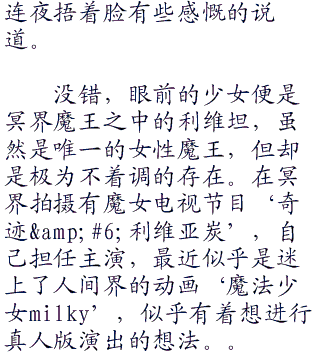 连夜捂着脸有些感慨的说
道。
没错，眼前的少女便是
冥界魔王之中的利维坦，虽
然是唯一的女性魔王，但却
是极为不着调的存在。在冥
界拍摄有魔女电视节目‘奇
迹&amp; #6; 利维亚炭’，自
己担任主演，最近似乎是迷
上了人间界的动画‘魔法少
女milky’，似乎有着想进行
真人版演出的想法。。